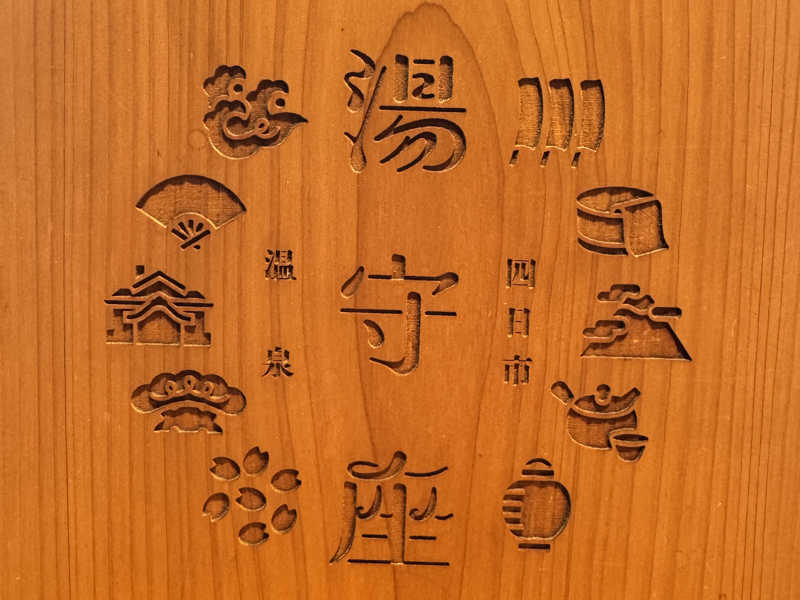 四日市
湯守座
温泉